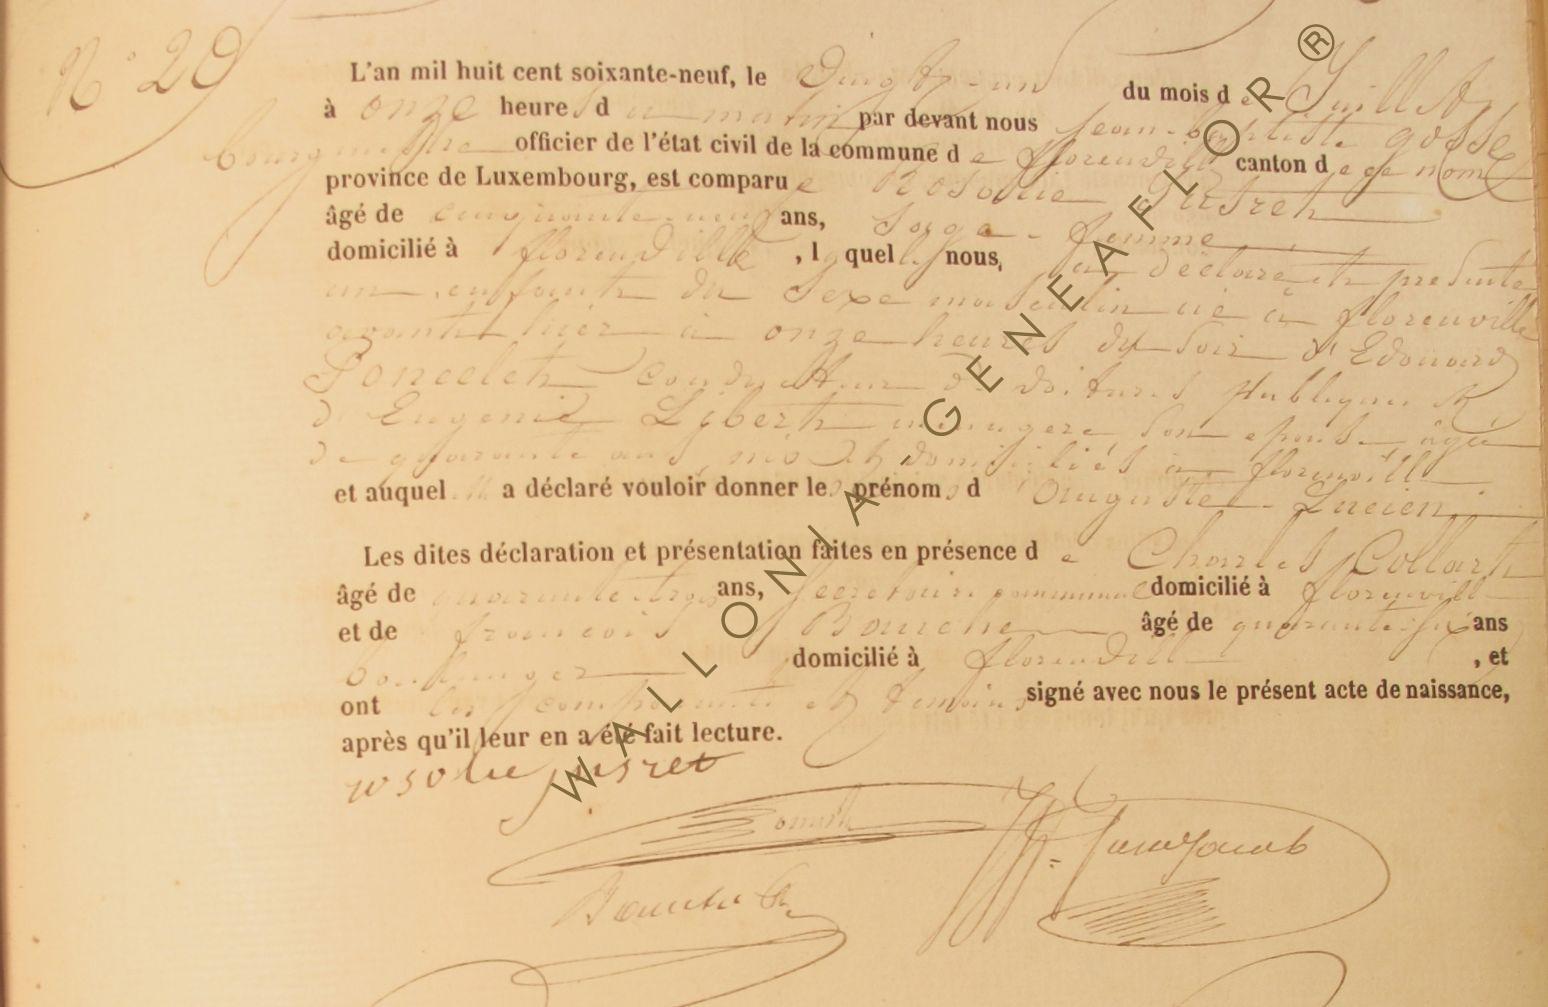 N° 29
L'an mil huit cent soixante-neuf, le Vingt-un du mois de Juillet
à onze heures du matin par devant nous jean-baptiste gosse
bourgmestre officier de l'état civil de la commune de florenville canton de ce nom
province de Luxembourg, est comparue Rosalie
âgé de cinquante-neuf ans, Sage-femme
domicilié à florenville , l quelle nous, a déclaré et présenté
un enfant du Sexe masculin né à florenville
avant hier à onze heures du Soir d'Edouard
Poncelet Conducteur de voitures publiques &
d'Eugenie Libert menagere Son épouse âgée
de quarante ans, domiciliés à florenville
et auquel elle a déclaré vouloir donner les prénoms d Auguste-Lucien
Les dites déclaration et présentation faites en présence de Charles Collart
âgé de quarante-trois ans, Secretaire communal domicilié à florenville
et de francois âgé de quarante-six ans
boulanger domicilié à florenville , et
ont les comparante et temoins signé avec nous le présent acte de naissance,
après qu'il leur en a été fait lecture.
WALLONIA, GENEAFLOR®